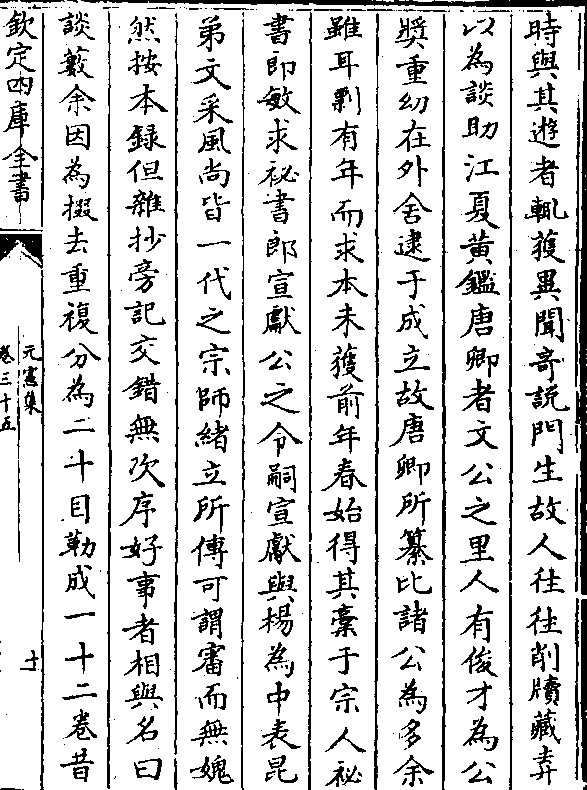 時與其遊者輒獲異聞奇説門生故人往往削牘藏弆
以為談助江夏黄鑑唐卿者文公之里人有俊才為公
奨重幼在外舍逮于成立故唐卿所纂比諸公為多余
雖耳剽有年而求本未獲前年春始得其藁于宗人祕
書郎敏求祕書郎宣獻公之令嗣宣獻與楊為中表昆
弟文采風尚皆一代之宗師緒立所傳可謂審而無媿
然按本録但雜抄旁記交錯無次序好事者相與名曰
談藪余因為掇去重複分為二十目勒成一十二卷昔
欽定四庫全書
元憲集
卷三十五
十